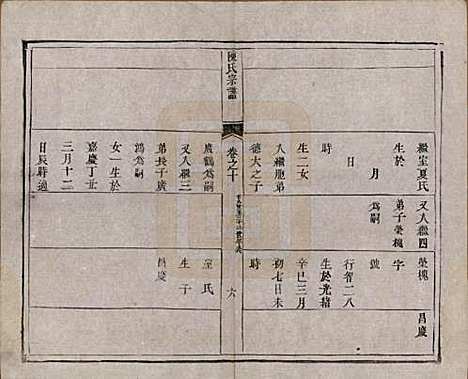 繼室夏氏
生於
月
日
時
生二女
入繼胞弟
德大之子
廣鶴爲嗣
又入繼三
弟長子廣
鶴爲嗣
女一生於
嘉慶丁丑
三月十二
日辰時適
又入繼四
弟子榮槐
爲嗣
榮槐
字
號
行智二八
生於光緒
辛巳三月
初七日未
時
室氏
生子
昌慶
昌慶
陳氏宗譜
卷之十
六